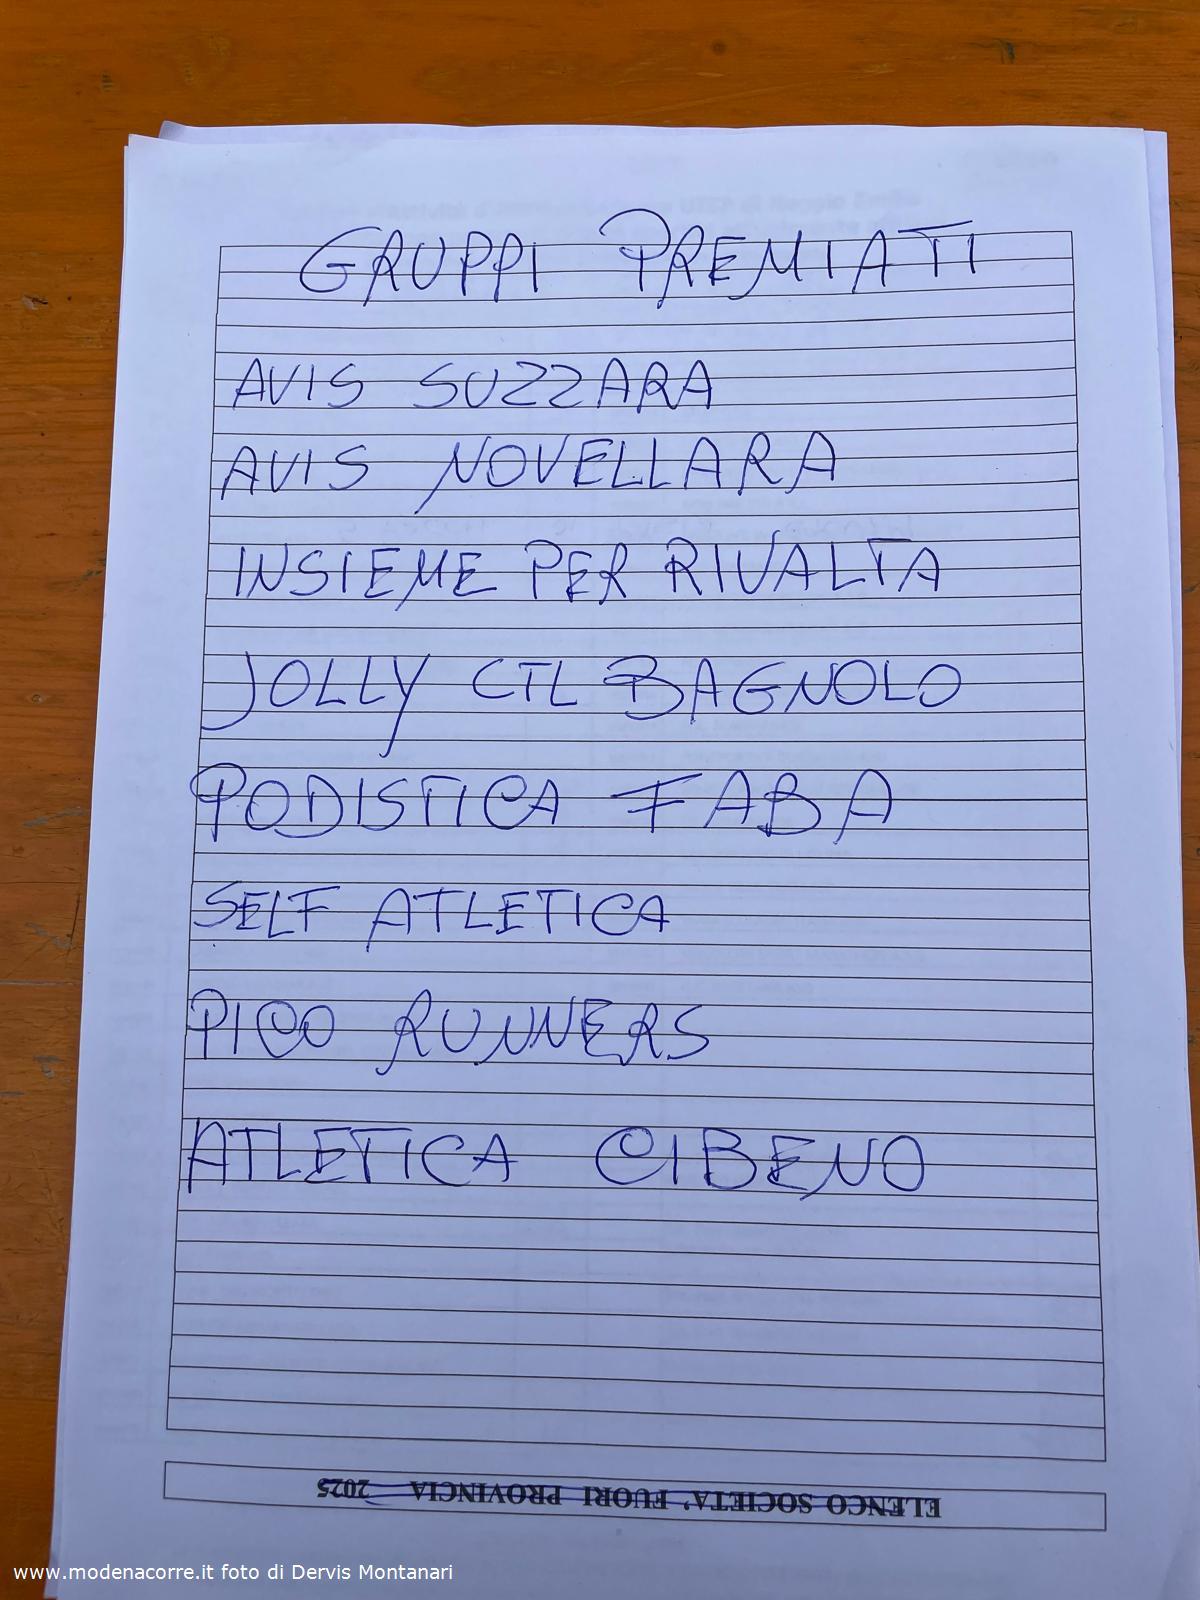 GRUPPI PREMIATI
AVIS SUZZARA
AVIS NOVELLARA
INSIEME PER RIVALTA
JOLLY CTL BAGNOLO
PODISTICA FABA
SELF ATLETICA
PICO RUNNERS
ATLETICA CIBENO
ELENCO SOCIETA' FUORI PROVINCIA 2025
www.modenacorre.it foto di Dervis Montanari